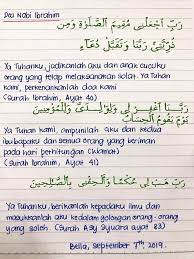 Doa Nabi Ibrahim
رَبِّ اجْعَلْنِي مُقِيمَ الصَّلَاةِ وَمِنْ
ذُرِّيَّتِي رَبَّنَا وَتَقَبَّلْ دُعَاءِ
Ya Tuhanku, jadikanlah aku dan anak cucuku
orang yang tetap melaksanakan solat. Ya Tuhan
kami, perkenankanlah doa kami
(Surah Ibrahim, Ayat 40)
رَبَّنَا اغْفِرْ لِي وَلِوَالِدَيَّ وَلِلْمُؤْمِنِينَ
يَوْمَ يَقُومُ الْحِسَابُ
Ya Tuhan kami, ampunilah aku dan kedua
ibubapaku dan semua orang yang beriman
pada hari perhitungan (Kiamat)
(Surah Ibrahim, Ayat 41)
رَبِّ هَبْ لِي حُكْمًا وَأَلْحِقْنِي بِالصَّالِحِينَ
Ya Tuhanku, berikanlah kepadaku ilmu dan
masukkanlah aku kedalam golongan orang-orang
yang soleh. (Surah Asy Syuara ayat 83)
Bella, September 7th, 2019.